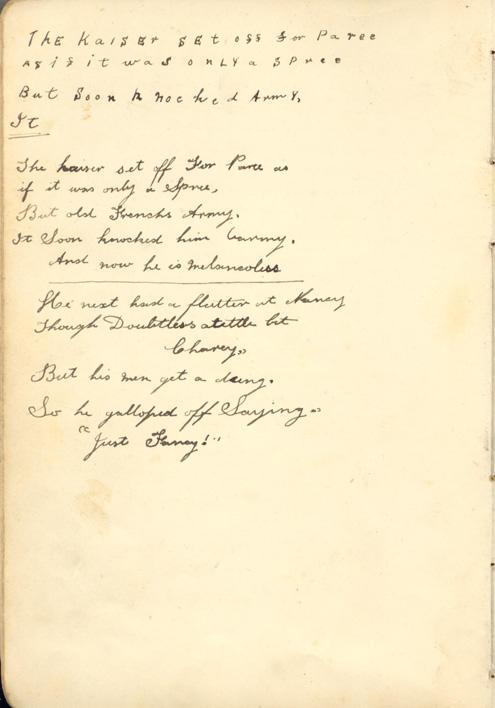 The Kaiser set off for Paree
as if it was only a spree
But Soon k nocked Army,
It
The kaiser set off For Paree as
if it was only a Spree,
But old Frenchs Army.
It Soon knocked him barmy.
And now he is melancolee
He next had a flutter at Nancy
Though Doubtless a little bit
Charey,,
But his men get a
So he galloped off Saying,,
"Just Fancy!"